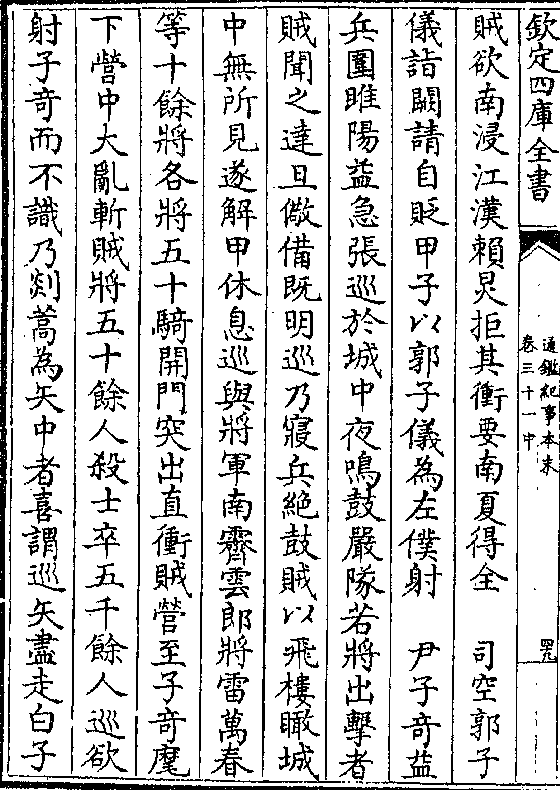 欽定四庫全書
通鑑紀事本末
卷三十一中
四九
賊欲南浸江漢賴炅拒其衝要南夏得全　司空郭子
儀詣闕請自貶甲子以郭子儀為左僕射　尹子竒益
兵圍睢陽益急張巡於城中夜鳴鼓嚴隊若將出擊者
賊聞之達旦儆備既明巡乃寢兵絶鼓賊以飛樓瞰城
中無所見遂解甲休息巡與將軍南霽雲郎將雷萬春
等十餘將各將五十騎開門突出直衝賊營至子竒麾
下營中大亂斬賊將五十餘人殺士卒五千餘人巡欲
射子竒而不識乃剡蒿為矢中者喜謂巡矢盡走白子